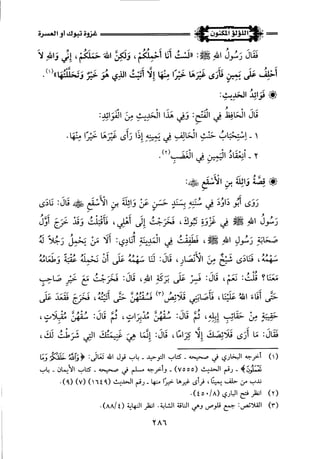 اللؤلؤ المكنون
غزوة تبوك أو العسرة
فَقَالَ رَسُولُ اللهِ ﷺ: «لَسْتُ أَنَا أَحْمِلُكُمْ، وَلَكِنَّ اللهَ حَمَلَكُمْ، إِنِّي وَاللهِ لَا
أَحْلِفُ عَلَى يَمِينٍ فَأَرَى غَيْرَهَا خَيْرًا مِنْهَا إِلَّا أَتَيْتُ الذِي هُوَ خَيْرٌ وَتَحَلَّلْتُهَا»(١).
* فَوَائِدُ الحَدِيثِ:
قَالَ الحَافِظُ فِي الفَتْحِ: وَفِي هَذَا الحَدِيثِ مِنَ الفَوَائِدِ:
١ - اسْتِحْبَابُ حِنْثِ الحَالِفِ فِي يَمِينِهِ إِذَا رَأَى غَيْرَهَا خَيْرًا مِنْهَا.
٢ - انْعِقَادُ اليَمِينِ فِي الغَضَبِ(٢).
* قِصَّةُ وَاثِلَةَ بنِ الأَسْقَعِ ﷺ:
رَوَى أَبُو دَاوُدَ فِي سُنَنِهِ بِسَنَدٍ حَسَنٍ عَنْ وَاثِلَةَ بنِ الأَسْقَعِ قَالَ: نَادَى
رَسُولُ اللهِ ﷺ فِي غَزْوَةِ تَبُوكَ، فَخَرَجْتُ إِلَى أَهْلِي، فَأَقْبَلْتُ وَقَدْ خَرَجَ أَوَّلُ
صَحَابَةِ رَسُولِ اللهِ ﷺ، فَطَفِقْتُ فِي المَدِينَةِ أُنَادِي: أَلَا مَنْ يَحْمِلُ رَجُلًا لَهُ
سَهْمُهُ، فَنَادَى شَيْخٌ مِنَ الأَنْصَارِ، قَالَ: لَنَا سَهْمُهُ عَلَى أَنْ نَحْمِلَهُ عُقْبَةً وَطَعَامُهُ
مَعَنَا؟ قُلْتُ: نَعَمْ، قَالَ: فَسِرْ عَلَى بَرَكَةِ اللهِ، قَالَ: فَخَرَجْتُ مَعَ خَيْرِ صَاحِبٍ
حَتَّى أَفَاءَ اللهُ عَلَيْنَا، فَأَصَابَنِي قَلَائِصُ(٣) فَسُقْتُهُنَّ حَتَّى أَتَيْتُهُ، فَخَرَجَ فَقَعَدَ عَلَى
حَقِيبَةٍ مِنْ حَقَائِبِ إِبِلِهِ، ثُمَّ قَالَ: سُقْهُنَّ مُدْبِرَاتٍ، ثُمَّ قَالَ: سُقْهُنَّ مُقْبِلَاتٍ،
فَقَالَ: مَا أَرَى قَلَائِصَكَ إِلَّا كِرَامًا، قَالَ: إِنَّمَا هِيَ غَنِيمَتُكَ التِي شَرَطْتُ لَكَ،
(١) أخرجه البخاري في صحيحه - كتاب التوحيد - باب قول الله تعالى: ﴿وَاللَّهُ خَلَقَكُمْ وَمَا
تَعْمَلُونَ﴾ - رقم الحديث (٧٥٥٥) - وأخرجه مسلم في صحيحه - كتاب الأيمان - باب
ندب من حلف يمينًا، فرأى غيرها خيرًا منها - رقم الحديث (١٦٤٩) (٧) (٩).
(٢) انظر فتح الباري (٤٥٠/٨).
(٣) القلائص: جمع قلوص وهي الناقة الشابة. انظر النهاية (٨٨/٤).
٢٨٦